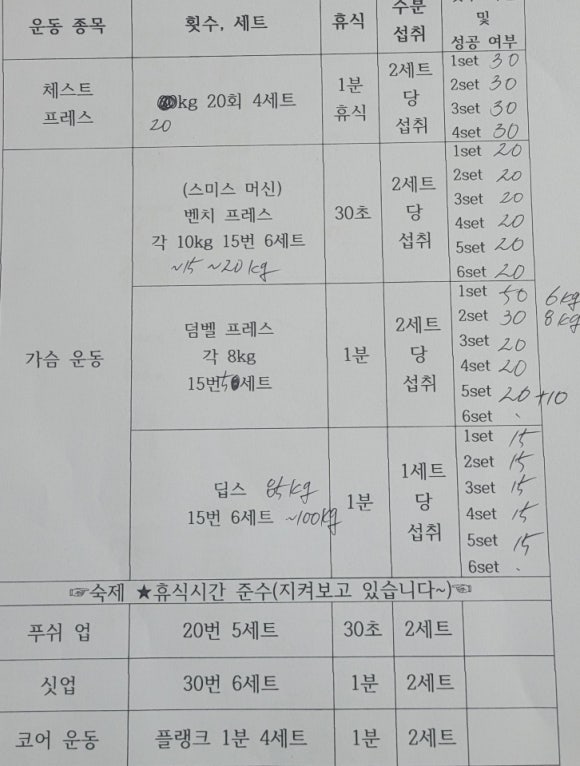 운동 종목 횟수, 세트 휴식 수분 섭취 및 성공 여부
체스트 프레스
kg 20회 4세트
20
1분 휴식
2세트 당 섭취
1set 30
2set 30
3set 30
4set 30
가슴 운동
(스미스 머신)
벤치 프레스
각 10kg 15번 6세트
~15 ~20kg
30초
2세트 당 섭취
1set 20
2set 20
3set 20
4set 20
5set 20
6set 20
덤벨 프레스
각 8kg
15번 5세트
1분
2세트 당 섭취
1set 50 6kg
2set 30 8kg
3set 20
4set 20
5set 20 +10
6set .
딥스 85kg
15번 6세트 ~100kg
1분
1세트 당 섭취
1set 15
2set 15
3set 15
4set 15
5set 15
6set .
☞숙제 ★휴식시간 준수(지켜보고 있습니다~)☜
푸쉬 업 20번 5세트 30초 2세트
싯업 30번 6세트 1분 2세트
코어 운동 플랭크 1분 4세트 1분 2세트